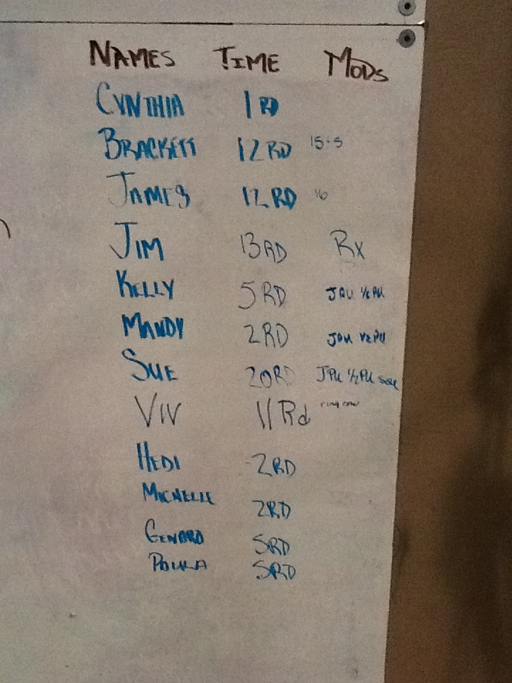 NAMES TIME MODS
CYNTHIA 1 RD
BRACKETT 12RD 15-5
JAMES 12 RD 16
JIM 13RD Rx
KELLY 5RD JPU 1/2 PU
MANDY 2RD JPU 1/2 PU
SUE 20RD JPU 1/2 PU
VIV 11 Rd
HEDI 2RD
MICHELLE 2RD
GENARD 5RD
PAULA 5RD